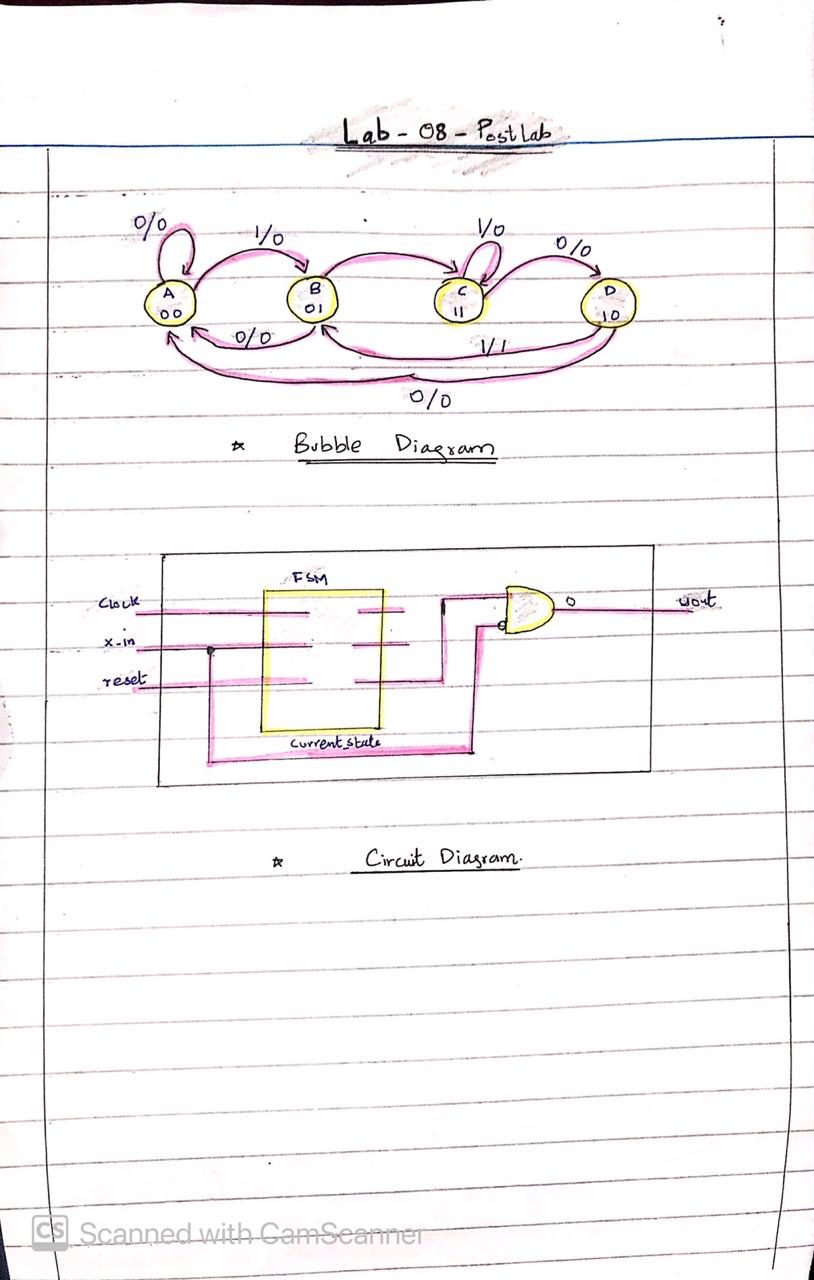 Lab - 08 - Post Lab
0/0 1/0 1/0 0/0
A B C D
00 01 11 10
0/0 1/1
0/0
☆ Bubble Diagram
FSM
Clock 0 wout
x-in
reset
Current_state
☆ Circuit Diagram.
CS Scanned with CamScanner